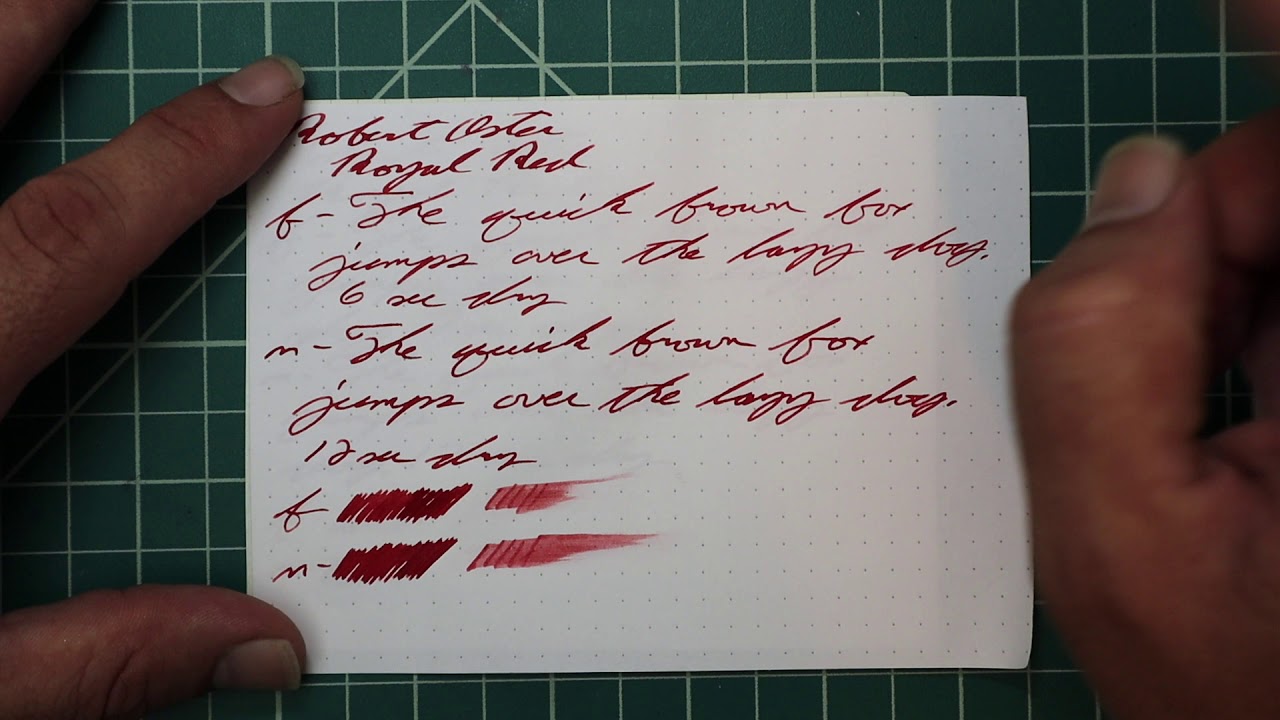 Robert Oster
Royal Red
f - The quick brown fox
jumps over the lazy dog.
6 sec dry
m - The quick brown fox
jumps over the lazy dog.
12 sec dry
f-
m-